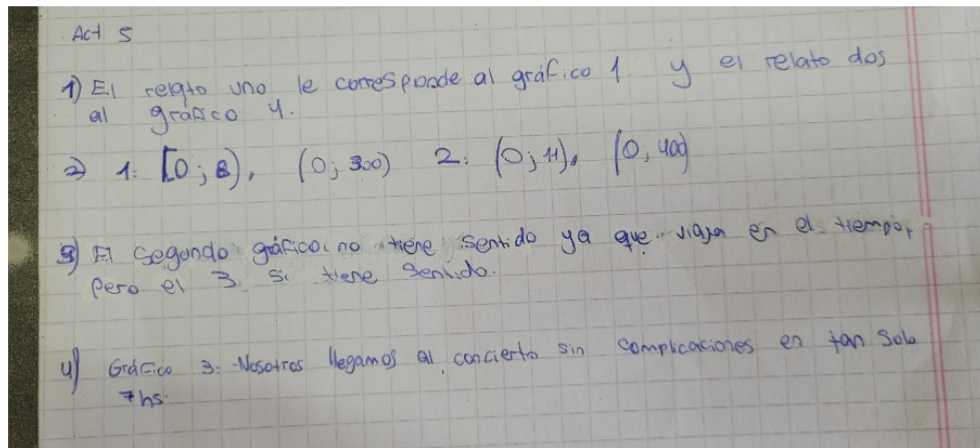 Act 5
1) El relato uno le corresponde al gráfico 1 y el relato dos
al gráfico 4.
2) 1: [0; 8), (0; 300) 2: (0; 11), (0; 400)
3) El segundo gráfico no tiene sentido ya que viajan en el tiempo,
pero el 3 si tiene sentido.
4) Gráfico 3: Nosotros llegamos al concierto sin complicaciones en tan solo
7hs.